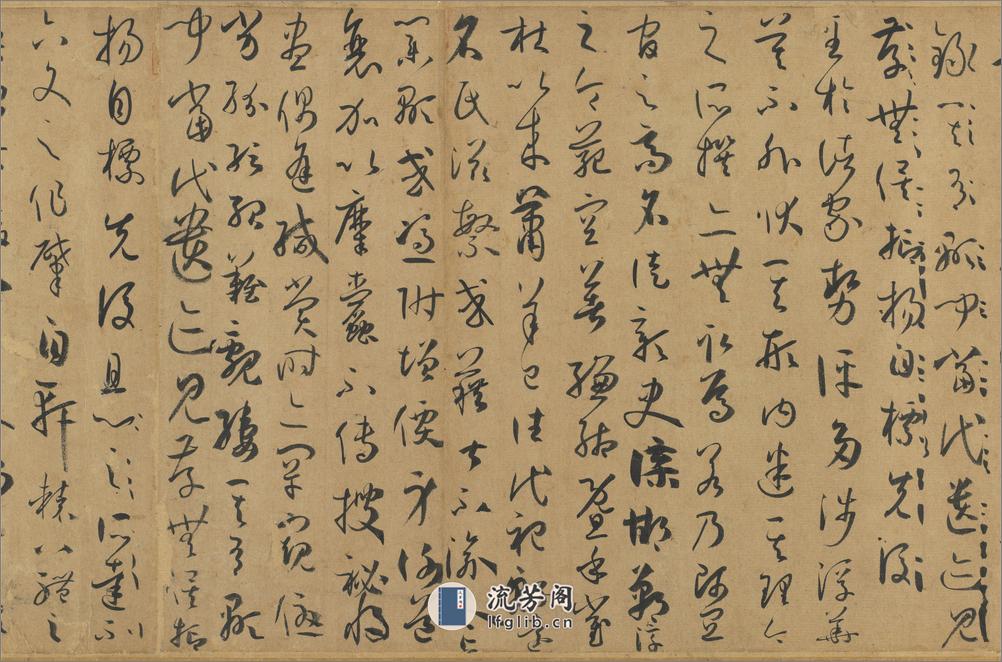 錄其有顯聞當代遺跡見
存無俟抑揚自標先後
至於諸家勢評多涉浮華
莫不外狀其形內迷其理今
之所撰亦無取焉若乃師宜
官之高名徒彰史牒邯鄲淳
之令範空著縑緗暨乎崔
杜以來蕭羊已往代祀綿遠
名氏滋繁或藉甚不渝人亡
業顯或憑附增價身謝道
衰加以糜蠹不傳搜秘將
盡偶逢緘賞時亦罕窺優
劣紛紜殆難覼縷其有顯
聞當代遺跡見存無俟抑
揚自標先後且心之所達不
六文之作肇自軒轅八體之
流芳阁
lfglib.cn